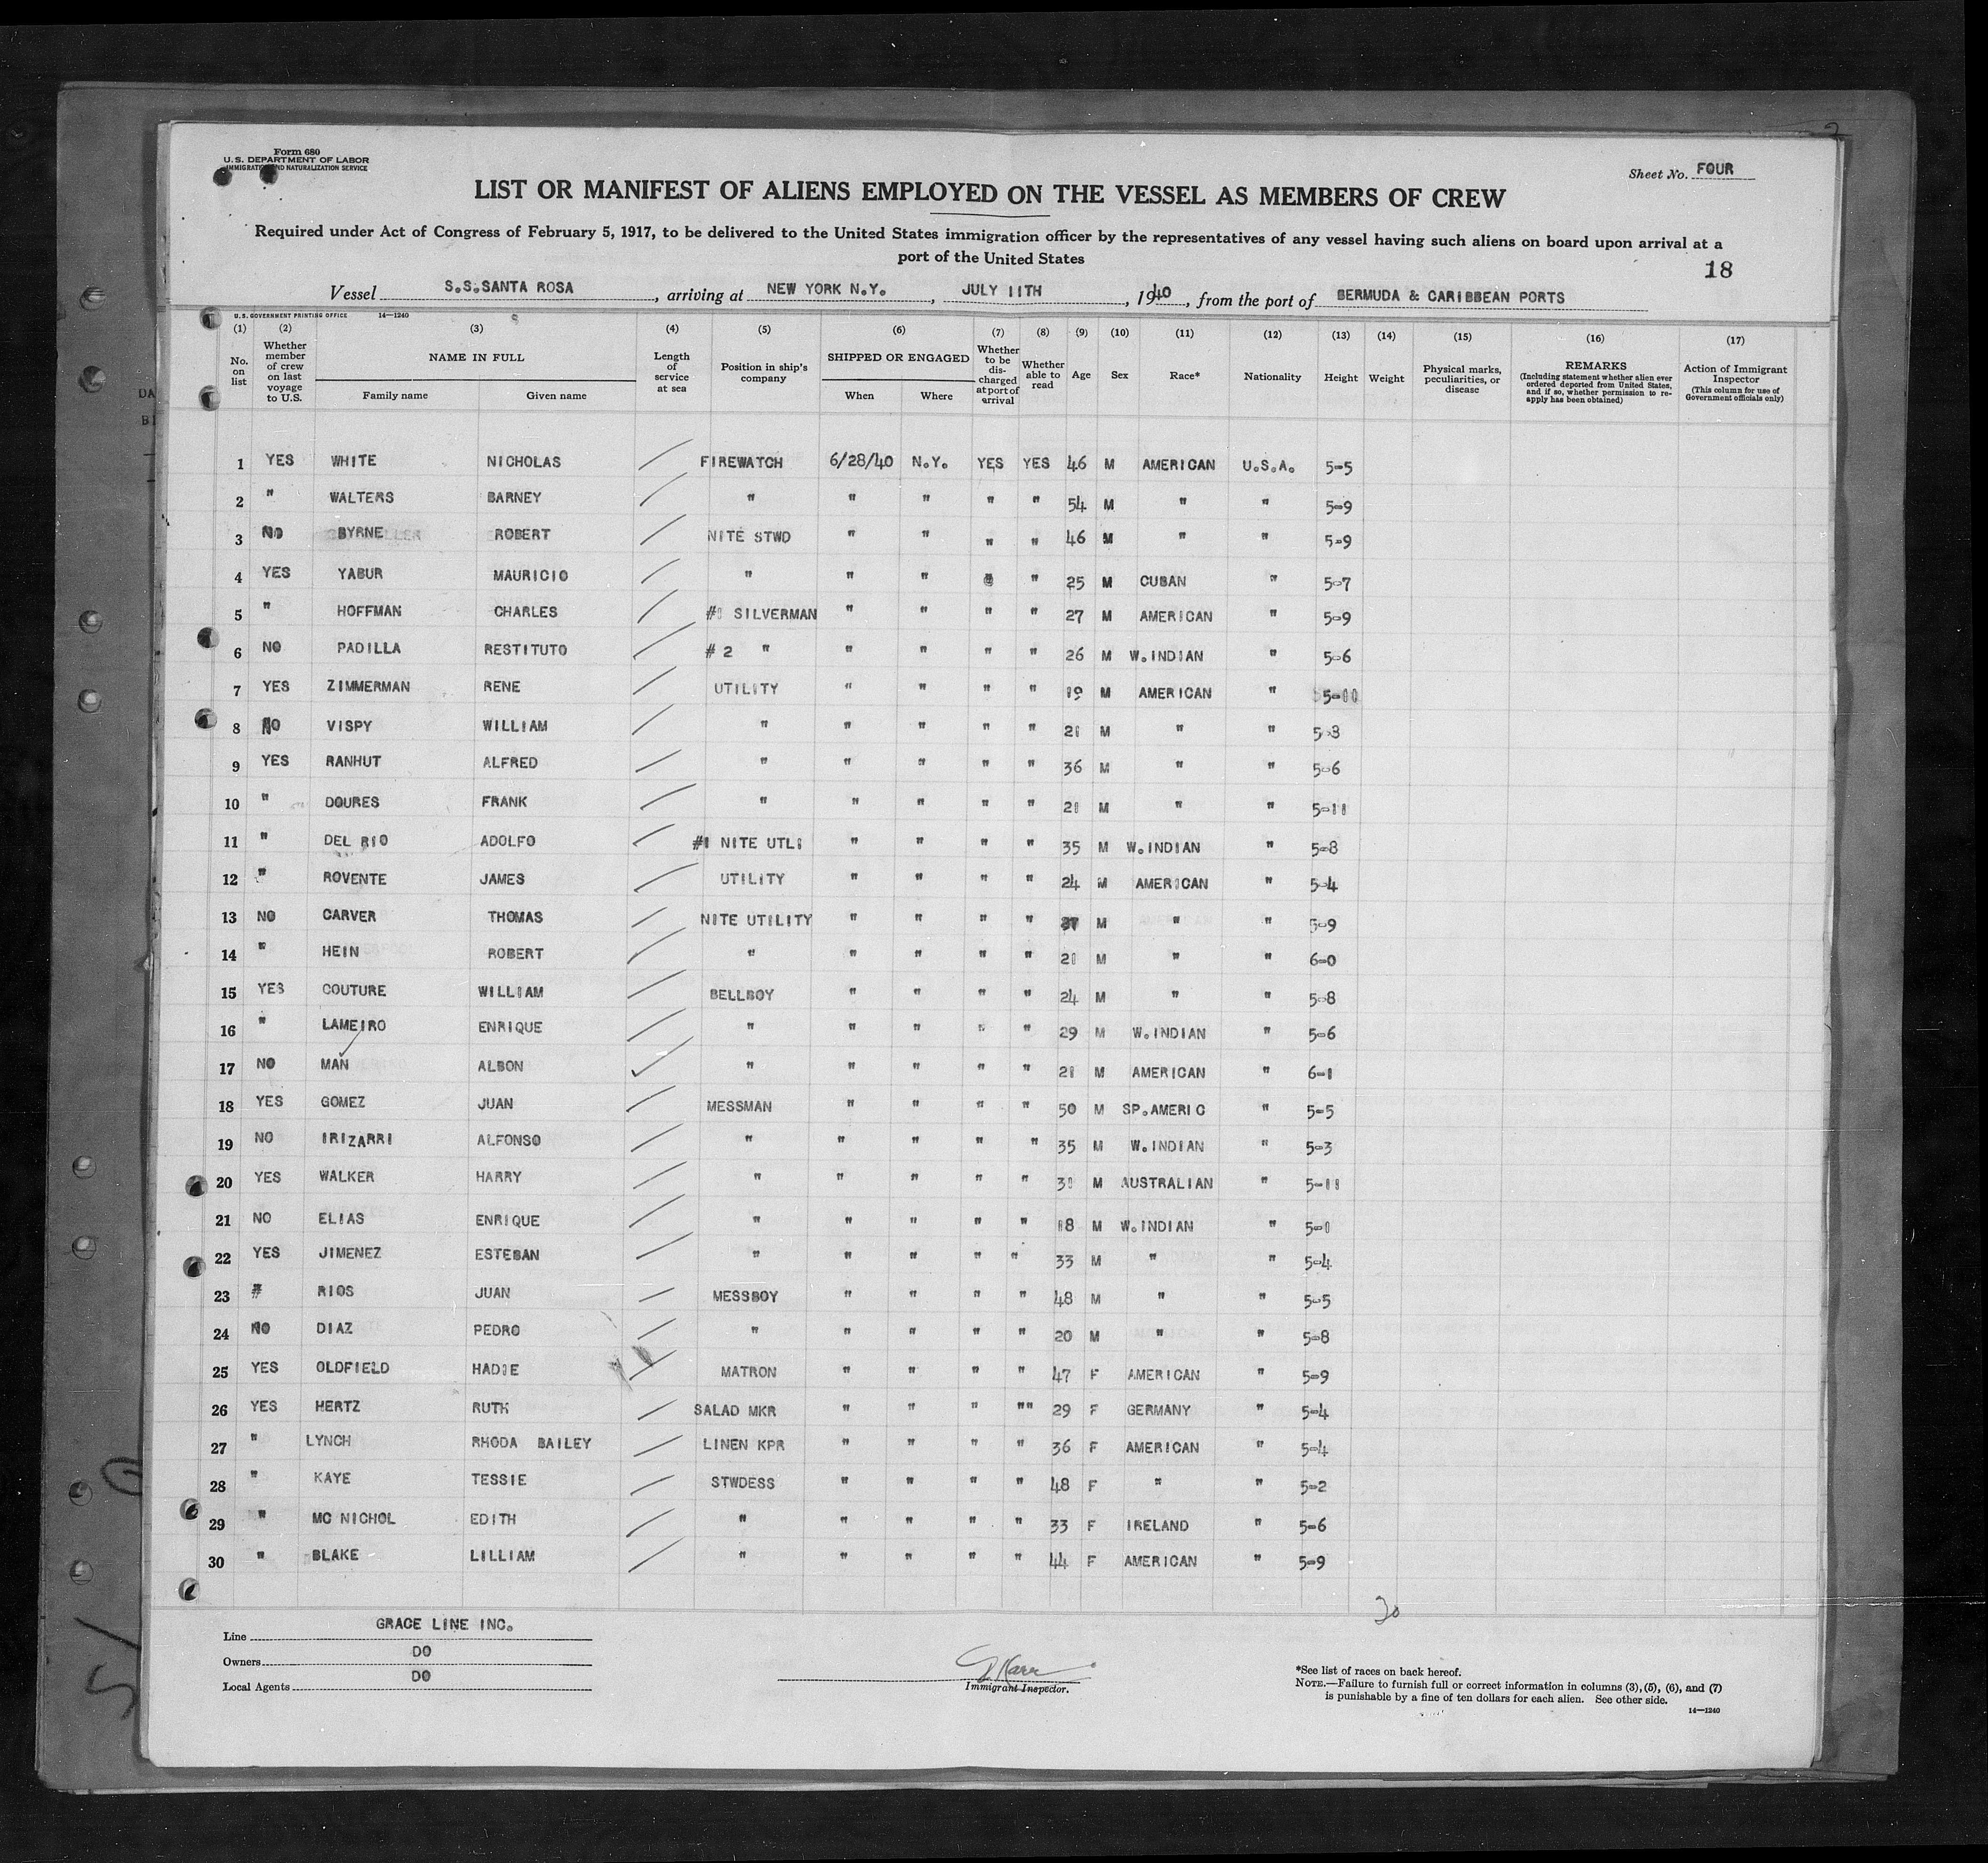 Form 680
U.S. DEPARTMENT OF LABOR
IMMIGRATION AND NATURALIZATION SERVICE
Sheet No. FOUR
LIST OR MANIFEST OF ALIENS EMPLOYED ON THE VESSEL AS MEMBERS OF CREW
Required under Act of Congress of February 5, 1917, to be delivered to the United States immigration officer by the representatives of any vessel having such aliens on board upon arrival at a
port of the United States
18
Vessel S.S.SANTA ROSA, arriving at NEW YORK N.Y., JULY 11TH, 1940, from the port of BERMUDA & CARIBBEAN PORTS
U.S. GOVERNMENT PRINTING OFFICE 14-1240
(1) (2) (3) (4) (5) (6) (7) (8) (9) (10) (11) (12) (13) (14) (15) (16) (17)
No. on list
Whether member of crew on last voyage to U.S.
NAME IN FULL
Family name Given name
Length of service at sea
Position in ship's company
SHIPPED OR ENGAGED
When Where
Whether to be discharged at port of arrival
Whether able to read
Age Sex Race* Nationality Height Weight
Physical marks, peculiarities, or disease
REMARKS
(Including statement whether alien ever ordered deported from United States, and if so, whether permission to reapply has been obtained)
Action of Immigrant Inspector
(This column for use of Government officials only)
1 YES WHITE NICHOLAS FIREWATCH 6/28/40 N.Y. YES YES 46 M AMERICAN U.S.A. 5-5
2 " WALTERS BARNEY " " " " " 54 M " " 5-9
3 NO BYRNE ROBERT NITE STWD " " " " 46 M " " 5-9
4 YES YABUR MAURICIO " " " " " 25 M CUBAN " 5-7
5 " HOFFMAN CHARLES #1 SILVERMAN " " " " 27 M AMERICAN " 5-9
6 NO PADILLA RESTITUTO #2 " " " " " 26 M W.INDIAN " 5-6
7 YES ZIMMERMAN RENE UTILITY " " " " 19 M AMERICAN " 5-10
8 NO VISPY WILLIAM " " " " " 21 M " " 5-8
9 YES RANHUT ALFRED " " " " " 36 M " " 5-6
10 " DOURES FRANK " " " " " 21 M " " 5-11
11 " DEL RIO ADOLFO #1 NITE UTLI " " " " 35 M W.INDIAN " 5-8
12 " ROVENTE JAMES UTILITY " " " " 24 M AMERICAN " 5-4
13 NO CARVER THOMAS NITE UTILITY " " " " 37 M " " 5-9
14 " HEIN ROBERT " " " " " 21 M " " 6-0
15 YES COUTURE WILLIAM BELLBOY " " " " 24 M " " 5-8
16 " LAMEIRO ENRIQUE " " " " " 29 M W.INDIAN " 5-6
17 NO MAN ALBON " " " " " 21 M AMERICAN " 6-1
18 YES GOMEZ JUAN MESSMAN " " " " 50 M SP.AMERIC " 5-5
19 NO IRIZARRI ALFONSO " " " " " 35 M W.INDIAN " 5-3
20 YES WALKER HARRY " " " " " 31 M AUSTRALIAN " 5-11
21 NO ELIAS ENRIQUE " " " " " 18 M W.INDIAN " 5-1
22 YES JIMENEZ ESTEBAN " " " " " 33 M " " 5-4
23 # RIOS JUAN MESSBOY " " " " 48 M " " 5-5
24 NO DIAZ PEDRO " " " " " 20 M " " 5-8
25 YES OLDFIELD HADIE MATRON " " " " 47 F AMERICAN " 5-9
26 YES HERTZ RUTH SALAD MKR " " " "" 29 F GERMANY " 5-4
27 " LYNCH RHODA BAILEY LINEN KPR " " " " 36 F AMERICAN " 5-4
28 " KAYE TESSIE STWDESS " " " " 48 F " " 5-2
29 " MC NICHOL EDITH " " " " " 33 F IRELAND " 5-6
30 " BLAKE LILLIAM " " " " " 44 F AMERICAN " 5-9
30
Line GRACE LINE INC.
Owners DO
Local Agents DO
Immigrant Inspector.
*See list of races on back hereof.
NOTE.—Failure to furnish full or correct information in columns (3), (5), (6), and (7)
is punishable by a fine of ten dollars for each alien. See other side.
14—1240